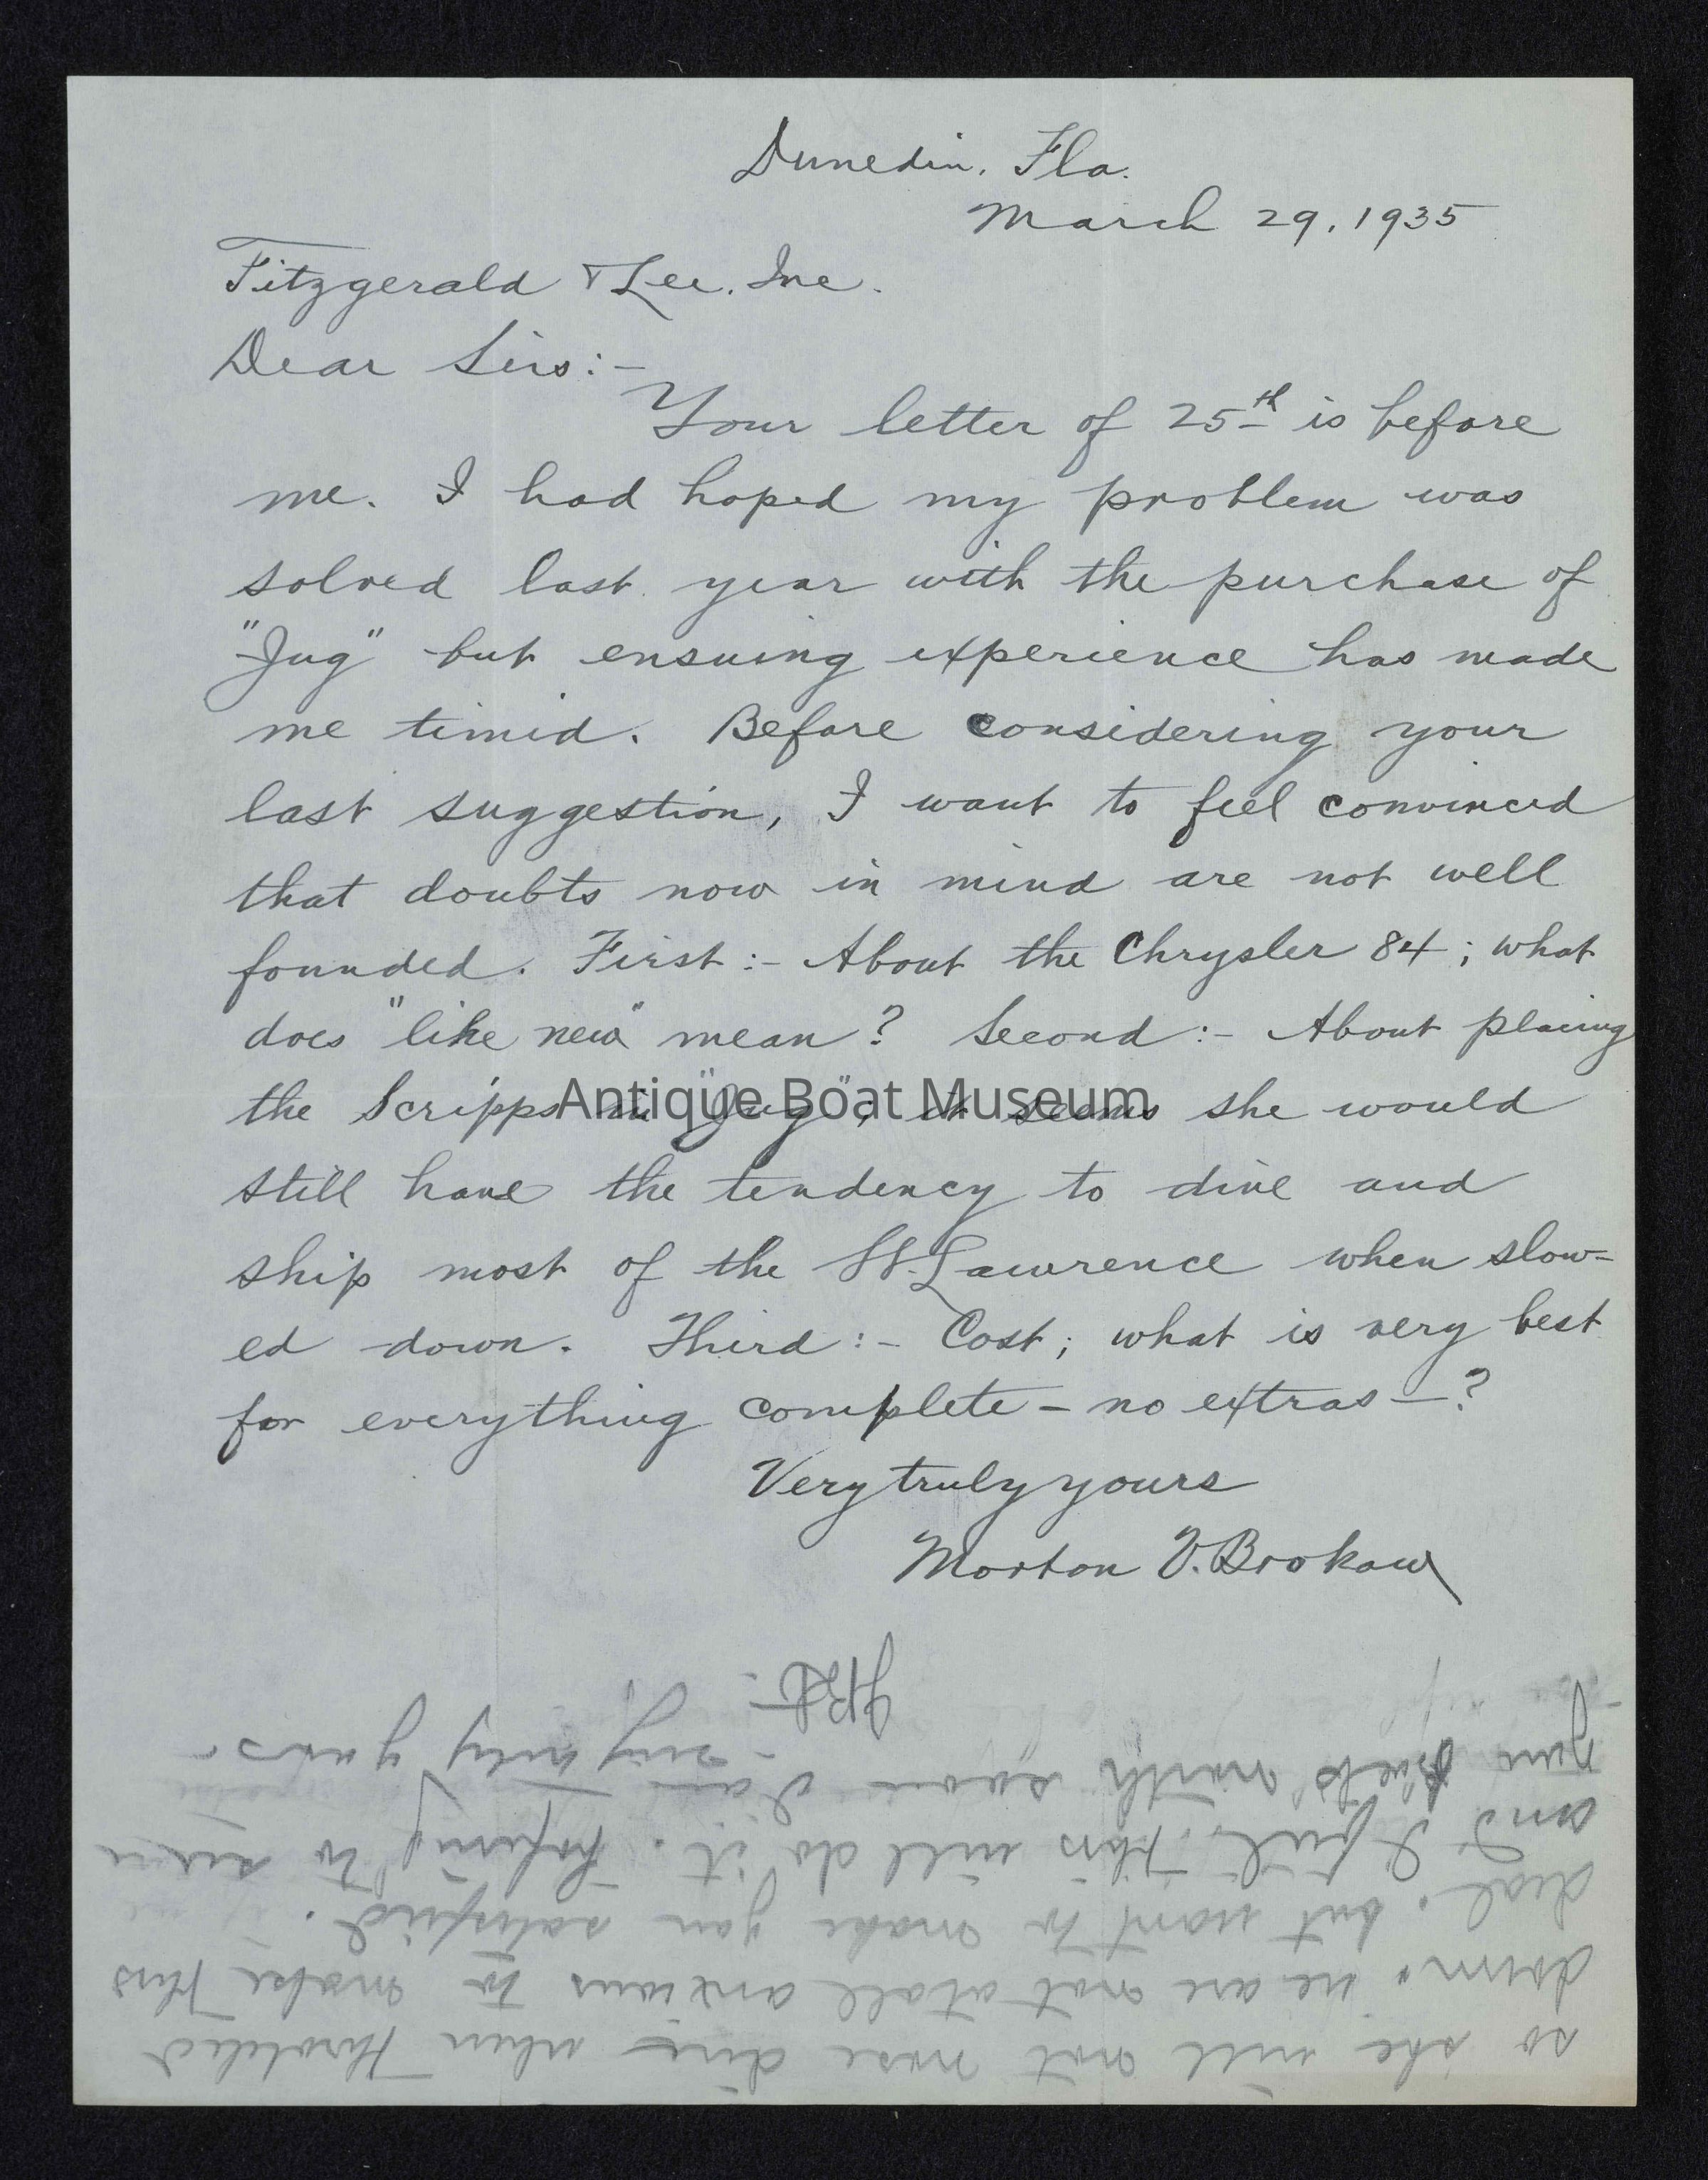 Dunedin, Fla.
March 29, 1935
Fitzgerald & Lee. Inc.
Dear Sirs:-
Your letter of 25th is before
me. I had hoped my problem was
solved last year with the purchase of
"Jug" but ensuing experience has made
me timid. Before considering your
last suggestion, I want to feel convinced
that doubts now in mind are not well
founded. First:- About the Chrysler 84; what
does "like new" mean? Second:- About placing
the Scripps in "Jug"; it seems she would
still have the tendency to dive and
ship most of the St. Lawrence when slow-
ed down. Third:- Cost; what is very best
for everything complete - no extras -?
Very truly yours
Morton V. Brokaw
Antique Boat Museum
so she will not nose dive when throttled
down. we are not at all anxious to make this
deal, but want to make you satisfied.
and I feel this will do it. Hoping to see
you back north soon I am
Very truly yours-